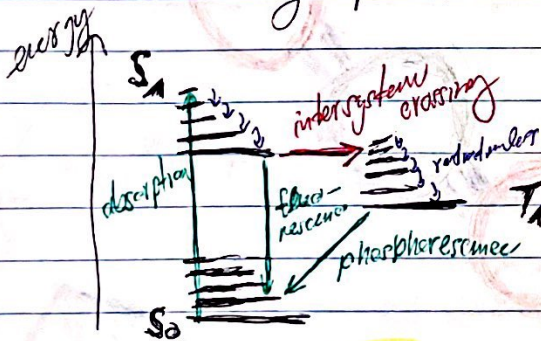 energy
S₁
intersystem
crossing
absorption
fluo-
rescence
T₁
phosphorescence
S₀